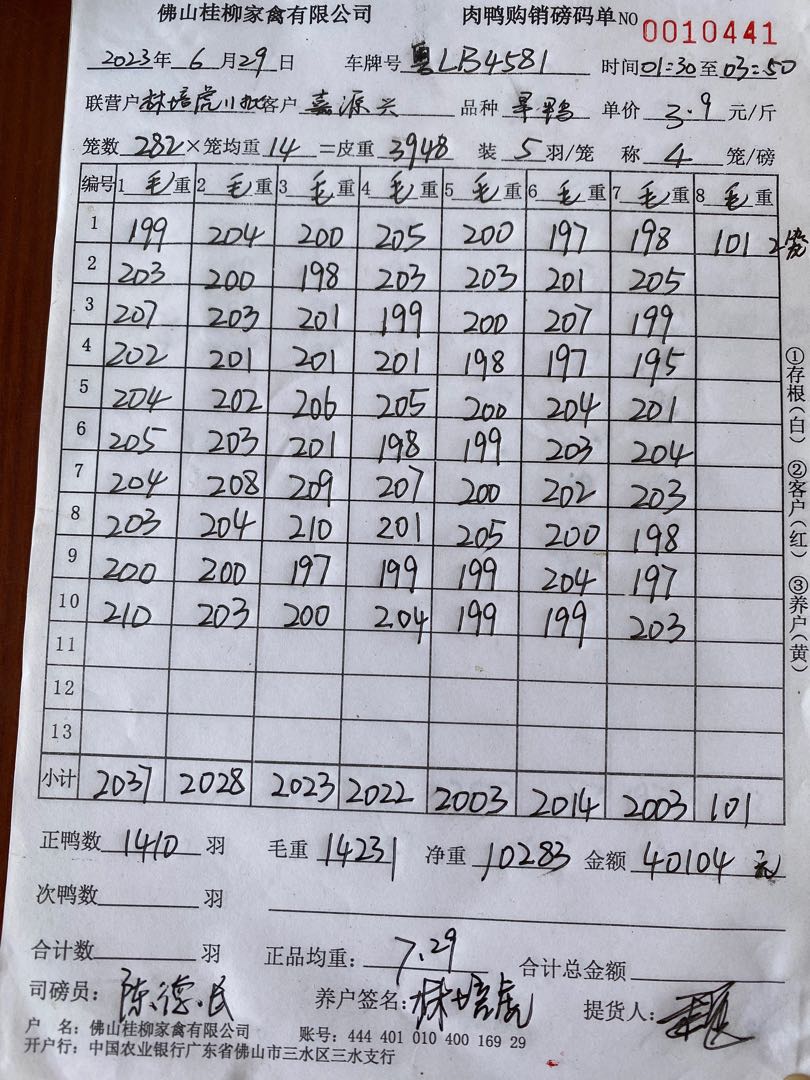 佛山桂柳家禽有限公司 肉鸭购销磅码单 NO 0010441
2023年 6月29日 车牌号 粤LB4581 时间01:30至03:50
联营户 林培虎 客户 嘉源兴 品种 单价 3.9 元/斤
笼数 282 ×笼均重 14 =皮重 3948 装 5 羽/笼 称 4 笼/磅
编号 1 毛重 2 毛重 3 毛重 4 毛重 5 毛重 6 毛重 7 毛重 8 毛重
1 199 204 200 205 200 197 198 101 2笼
2 203 200 198 203 203 201 205
3 207 203 201 199 200 207 199
4 202 201 201 201 198 197 195
5 204 202 206 205 200 204 201
6 205 203 201 198 199 203 204
7 204 208 209 207 200 202 203
8 203 204 210 201 205 200 198
9 200 200 197 199 199 204 197
10 210 203 200 204 199 199 203
11
12
13
小计 2037 2028 2023 2022 2003 2014 2003 101
正鸭数 1410 羽 毛重 14231 净重 10283 金额 40104 元
次鸭数 羽
合计数 羽 正品均重: 7.29 合计总金额
司磅员: 陈德民 养户签名: 林培虎 提货人:
户 名: 佛山桂柳家禽有限公司 账号: 444 401 010 400 169 29
开户行: 中国农业银行广东省佛山市三水区三水支行
①存根(白) ②客户(红) ③养户(黄)